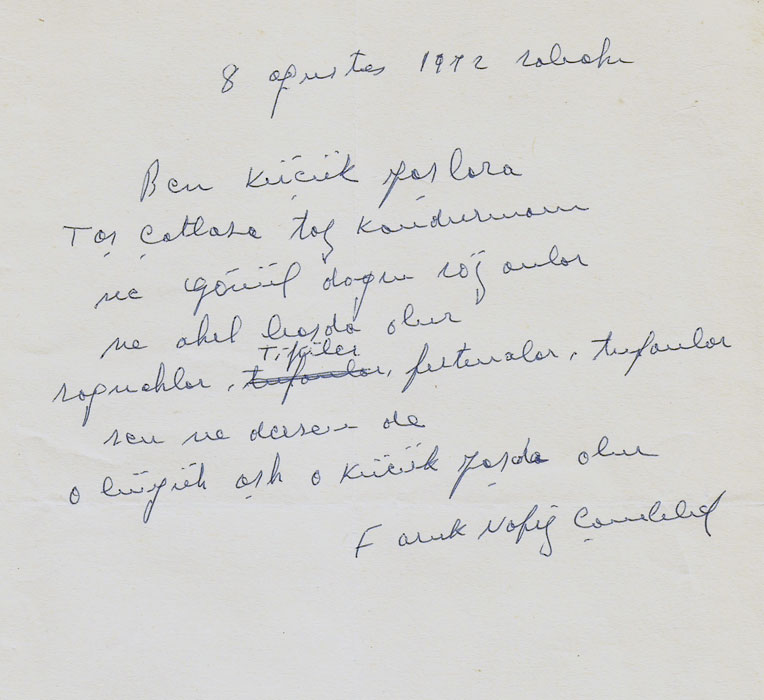 8 ağustos 1972 sabahı
Ben küçük yaşlara
Taş çatlasa toz kondurmam
ne gönül doğru söz anlar
ne akıl başda olur
Tipiler
sağnaklar, tufanlar, furtunalar, tufanlar
sen ne dersen de
o büyük aşk o küçük yaşda olur
Faruk Nafiz Çamlıbel